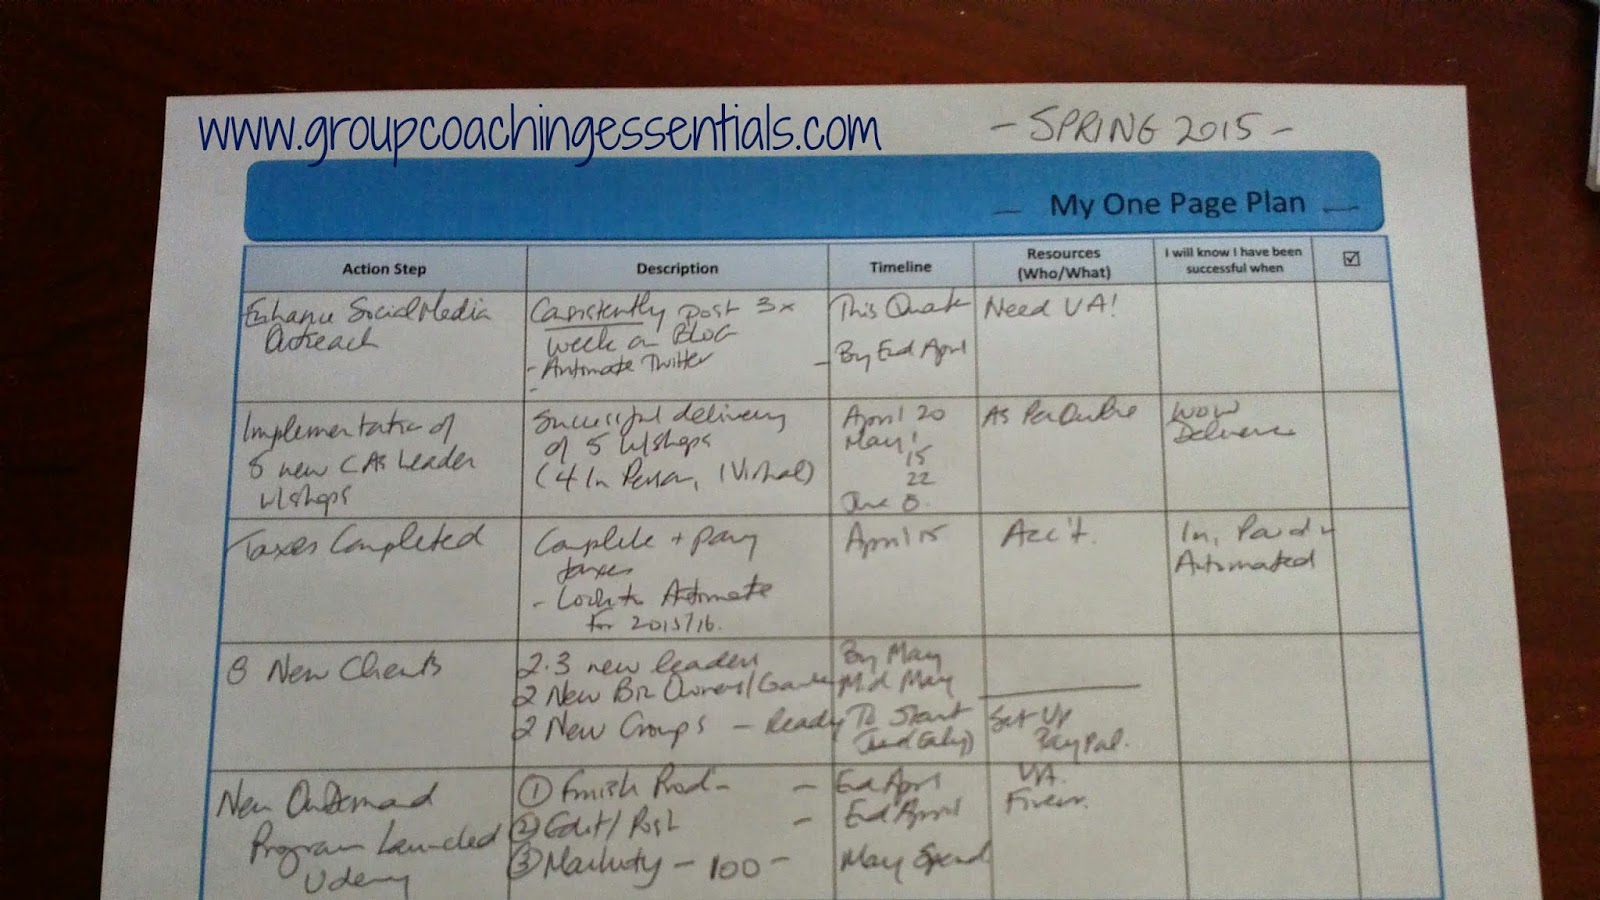 www.groupcoachingessentials.com
- SPRING 2015 -
My One Page Plan
Action Step
Description
Timeline
Resources
(Who/What)
I will know I have been
successful when
Enhance Social Media
Outreach
Consistently post 3x
week on BLOG
- Automate Twitter
-
This Quarter
- By End April
Need VA!
Implementation of
5 new C As Leader
w/shops
Successful delivery
of 5 w/shops
(4 In Person, 1 Virtual)
April 20
May 1
15
22
June
As Per Outline
WOW
Taxes Completed
Complete + pay
taxes
- Look to Automate
for 2015/16.
April 15
Acc't.
In, Paid +
Automated
8 New Clients
2-3 new leaders
2 New Biz Owners/
2 New Groups - Ready To Start
By May
Mid May
Set Up
PayPal.
New OnDemand
Program Launched
Udemy
① Finish Prod -
② Edit/Post
③ Marketing - 100 -
- End April
- End April
May Spend
VA.
Fiverr.